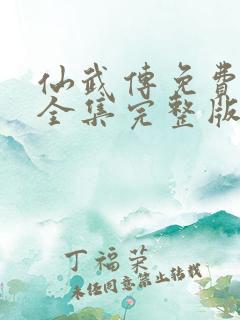 仙武传免费
全集完整版
丁福荣
未经同意禁止转载